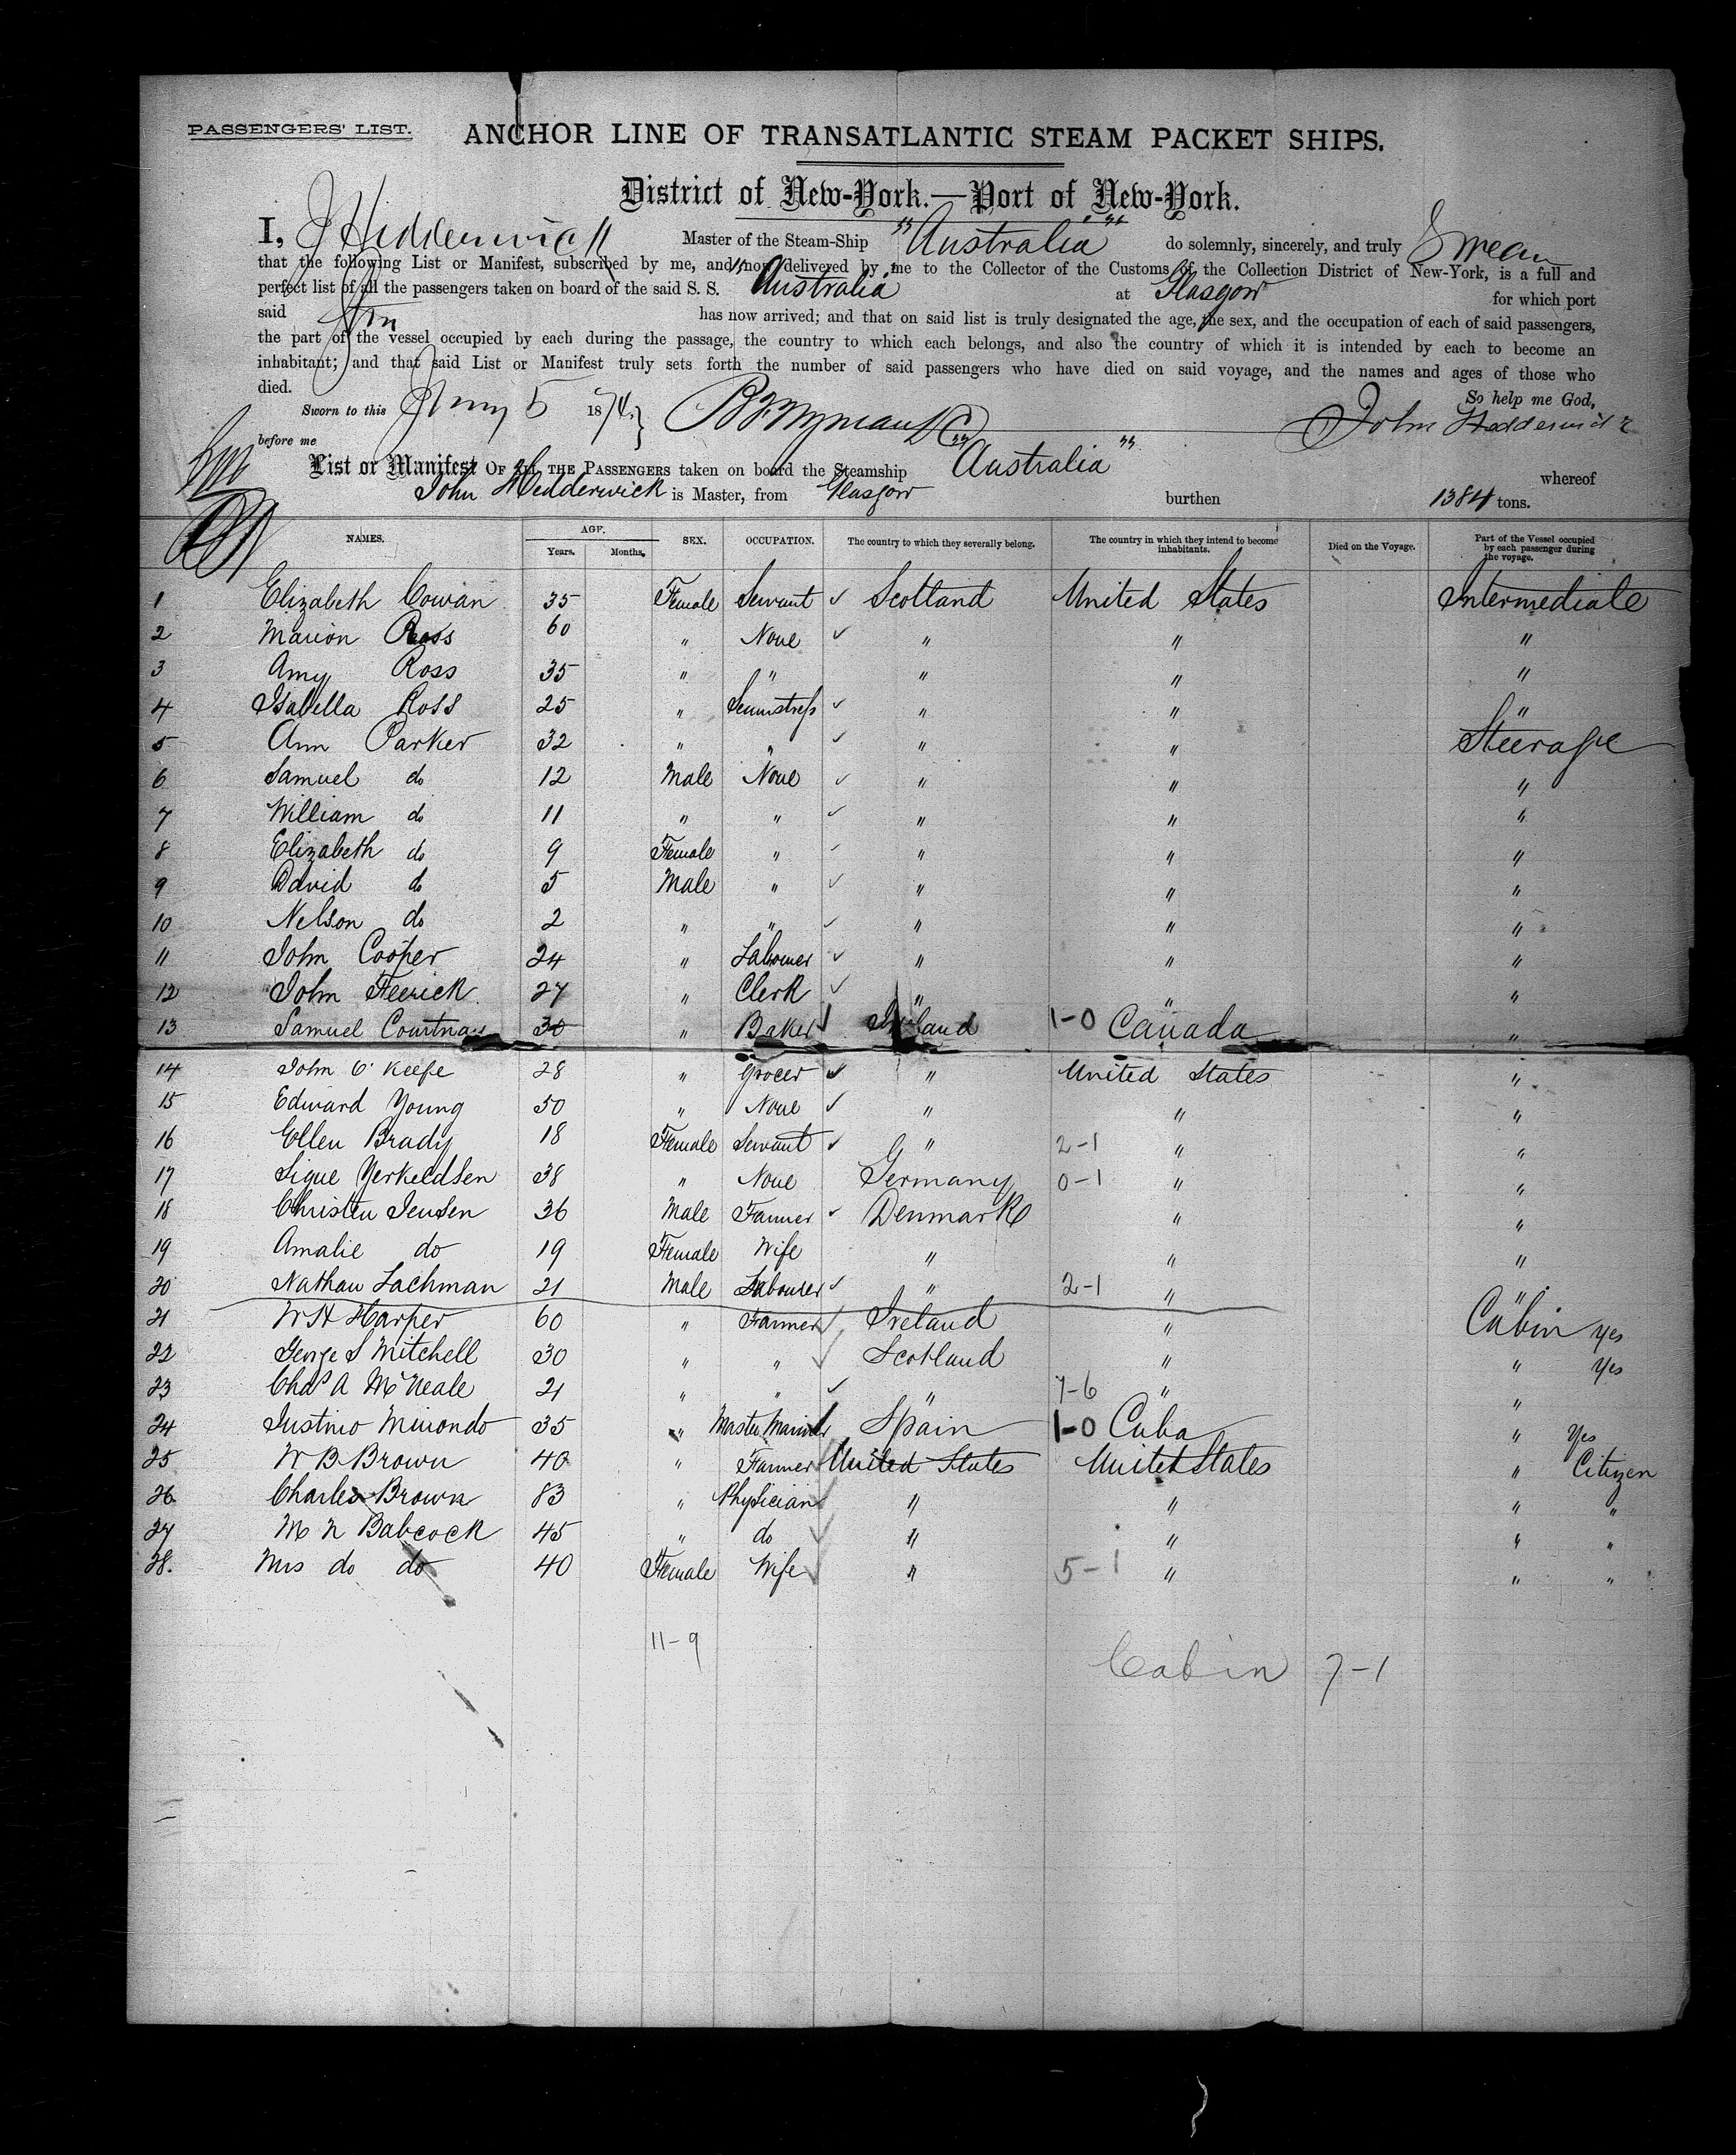 PASSENGERS' LIST. ANCHOR LINE OF TRANSATLANTIC STEAM PACKET SHIPS.
District of New-York.—Port of New-York.
I, J Hedderwick Master of the Steam-Ship "Australia" do solemnly, sincerely, and truly Swear
that the following List or Manifest, subscribed by me, and now delivered by me to the Collector of the Customs of the Collection District of New-York, is a full and
perfect list of all the passengers taken on board of the said S. S. "Australia" at Glasgow for which port
said has now arrived; and that on said list is truly designated the age, the sex, and the occupation of each of said passengers,
the part of the vessel occupied by each during the passage, the country to which each belongs, and also the country of which it is intended by each to become an
inhabitant; and that said List or Manifest truly sets forth the number of said passengers who have died on said voyage, and the names and ages of those who
died. So help me God,
Sworn to this 5 1874 John Hedderwick
before me
List or Manifest OF ALL THE PASSENGERS taken on board the Steamship "Australia" whereof
John Hedderwick is Master, from Glasgow burthen 1384 tons.
NAMES. AGE. Years. Months. SEX. OCCUPATION. The country to which they severally belong. The country in which they intend to become inhabitants. Died on the Voyage. Part of the Vessel occupied by each passenger during the voyage.
1 Elizabeth Cowan 35 Female Servant ✓ Scotland United States Intermediate
2 Marion Ross 60 " None ✓ " " "
3 Amy Ross 35 " " " " "
4 Isabella Ross 25 " Seamstress ✓ " " "
5 Ann Parker 32 " " ✓ " " Steerage
6 Samuel do 12 Male None ✓ " " "
7 William do 11 " " ✓ " " "
8 Elizabeth do 9 Female " ✓ " " "
9 David do 5 Male " ✓ " " "
10 Nelson do 2 " " ✓ " " "
11 John Cooper 24 " Labourer ✓ " " "
12 John Feerick 27 " Clerk ✓ " " "
13 Samuel Courtnay 30 " Baker ✓ Ireland 1-0 Canada "
14 John O'Keefe 28 " Grocer ✓ " United States "
15 Edward Young 50 " None ✓ " " "
16 Ellen Brady 18 Female Servant ✓ " 2-1 " "
17 Signe Yerkeldsen 38 " None Germany 0-1 " "
18 Christen Jensen 36 Male Farmer ✓ Denmark " "
19 Amalie do 19 Female Wife " " "
20 Nathan Lachman 21 Male Labourer ✓ " 2-1 " "
21 W H Harper 60 " Farmer ✓ Ireland " Cabin yes
22 George S Mitchell 30 " " ✓ Scotland " " Yes
23 Chas A McNeale 21 " " ✓ " 7-6 " "
24 Justino Mirondo 35 " Master Mariner ✓ Spain 1-0 Cuba " Yes
25 W B Brown 40 " Farmer ✓ United States United States " Citizen
26 Charles Brown 83 " Physician ✓ " " " "
27 M N Babcock 45 " do ✓ " " " "
28. Mrs do do 40 Female Wife ✓ " 5-1 " " "
11-9
Cabin 7-1